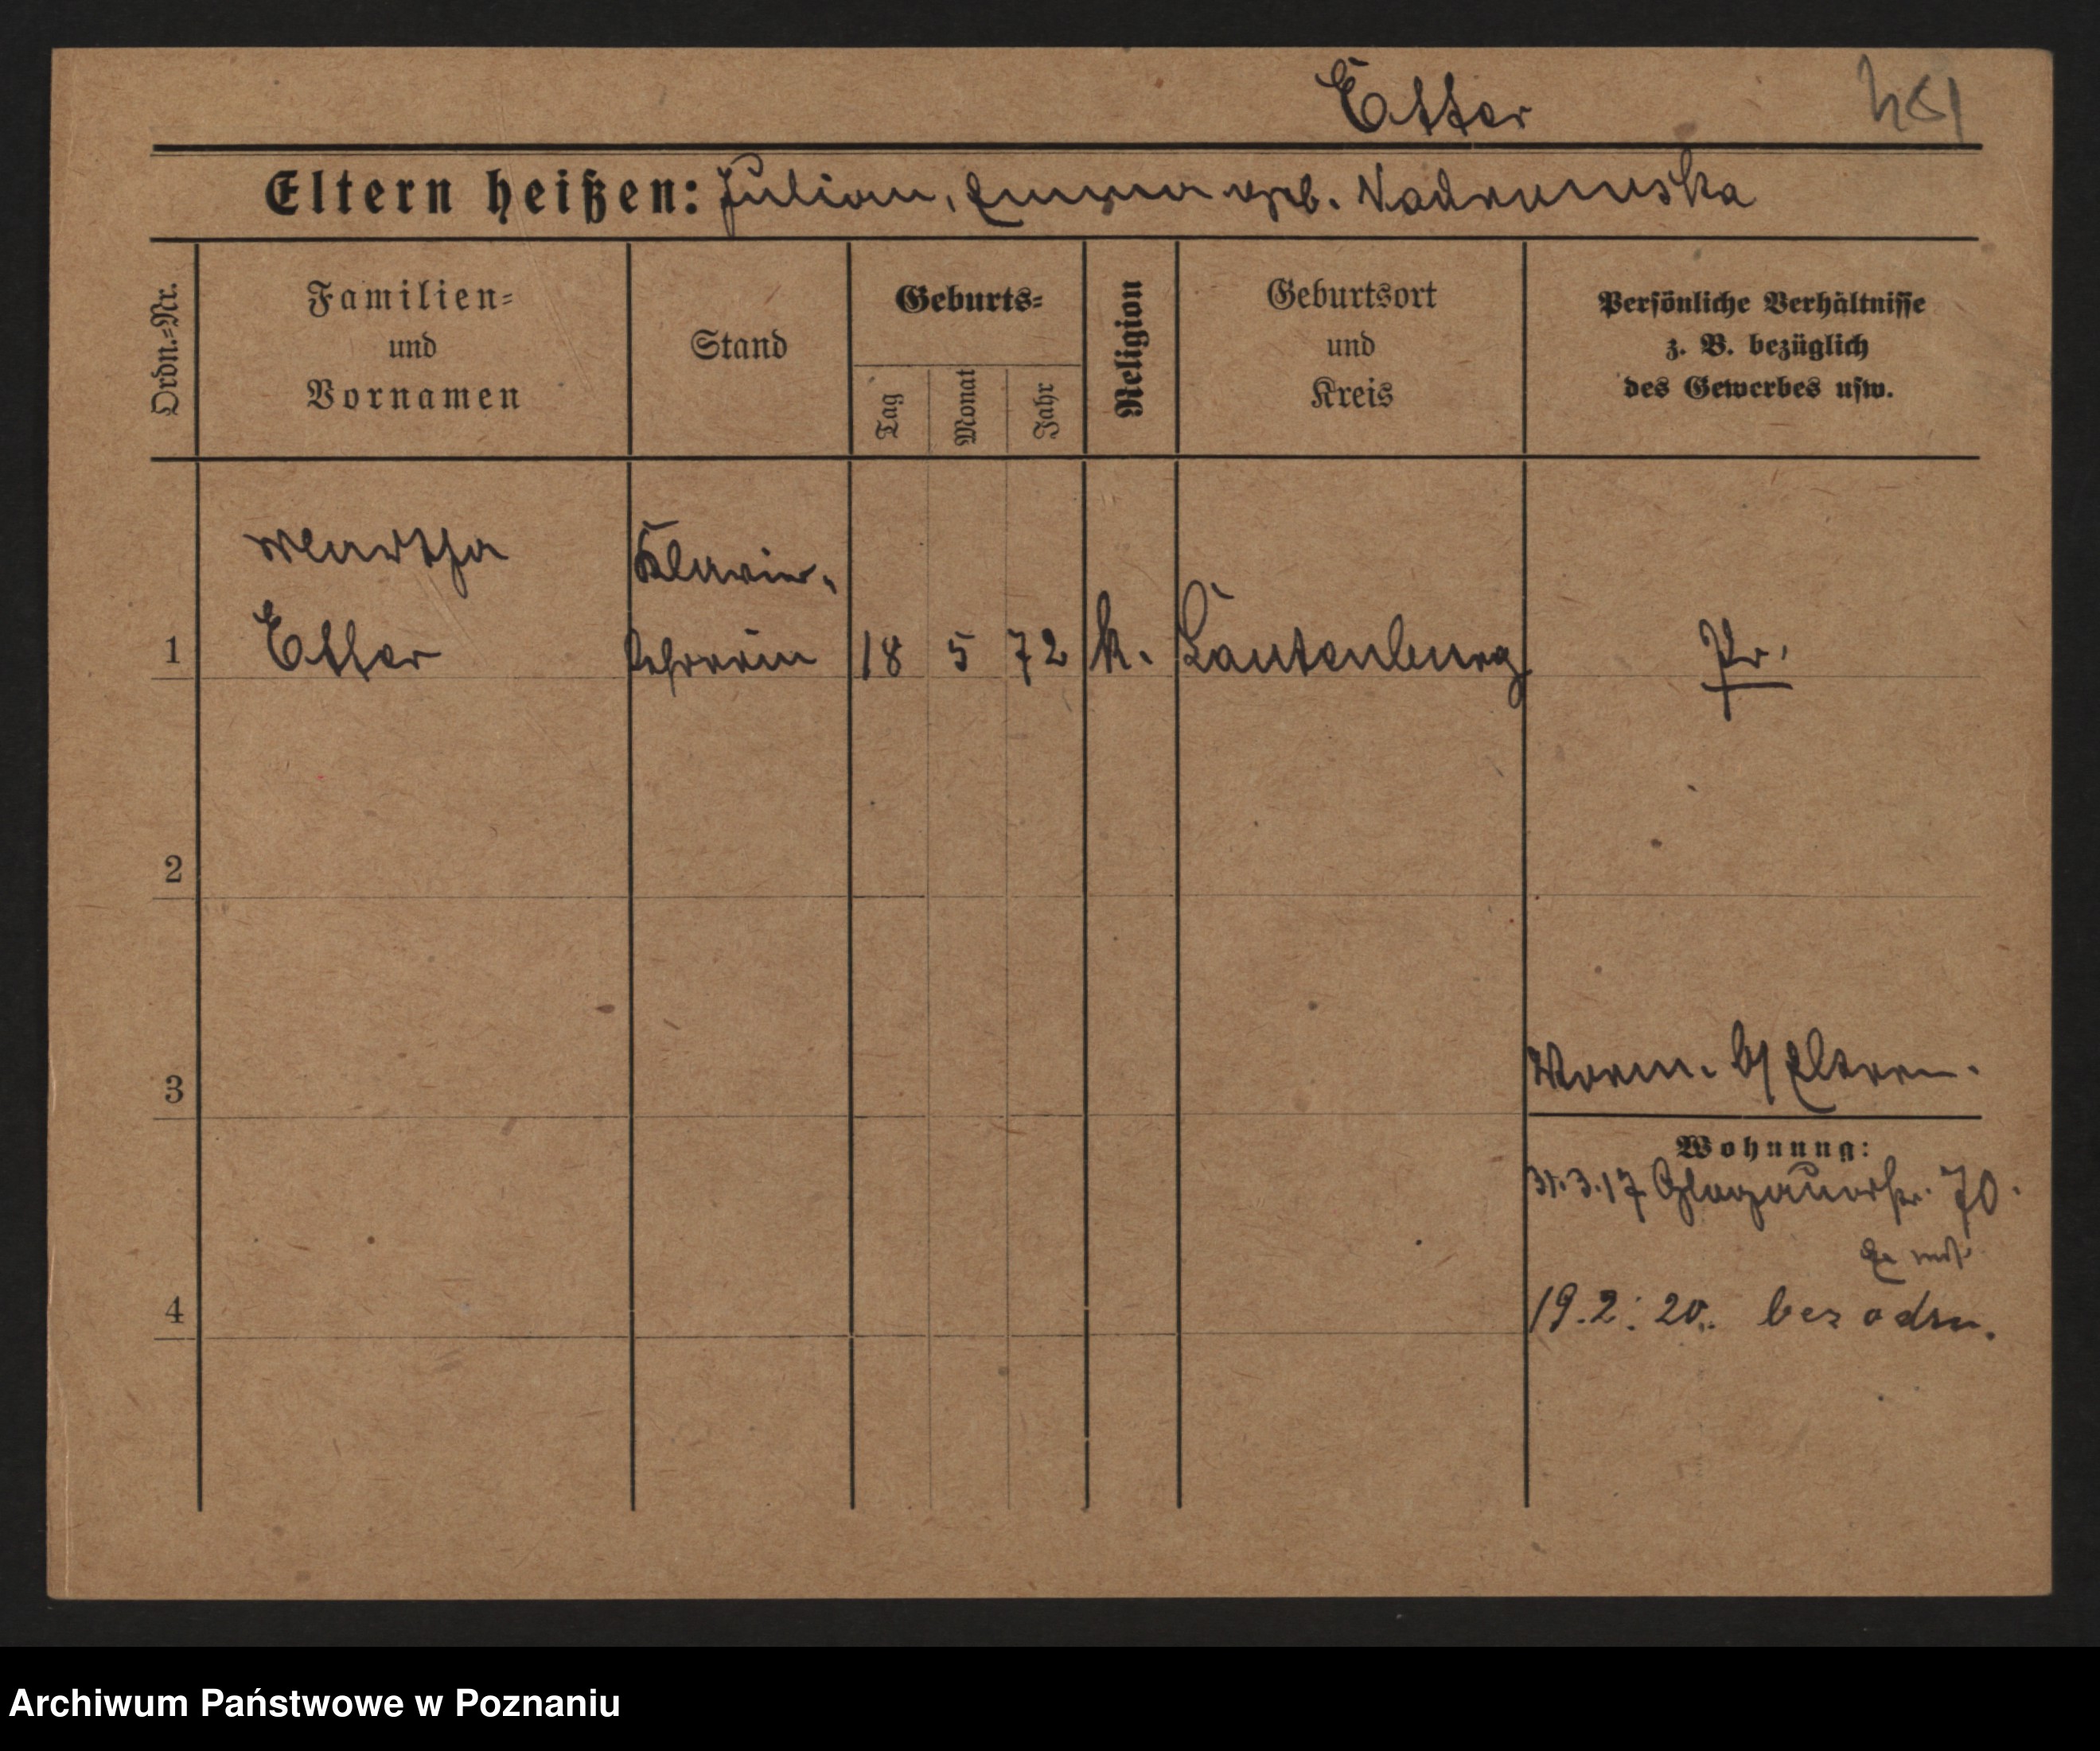 Etter
Eltern heißen: Julian, Emma geb. Nadrowska
Ordn.-Nr.
Familien-
und
Vornamen
Stand
Geburts-
Tag
Monat
Jahr
Religion
Geburtsort
und
Kreis
Persönliche Verhältnisse
z. B. bezüglich
des Gewerbes usw.
Martha
Klavier-
1 Etter lehrerin 18 5 72 k. Lautenburg Pr.
2
3
b/ Eltern.
Wohnung:
31.3.17 Glogauerstr. 70.
4 19.2.20. bez adru.
Archiwum Państwowe w Poznaniu